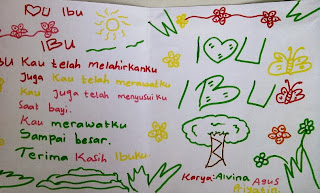 I ♡ U Ibu
IBU
IBU Kau telah melahirkanku
Juga Kau telah merawatku
Kau juga telah menyusui ku
Saat bayi.
Kau merawatku
Sampai besar.
Terima Kasih Ibuku.
I ♡ U
IBU
Karya: Alvina Agus
Priyatin